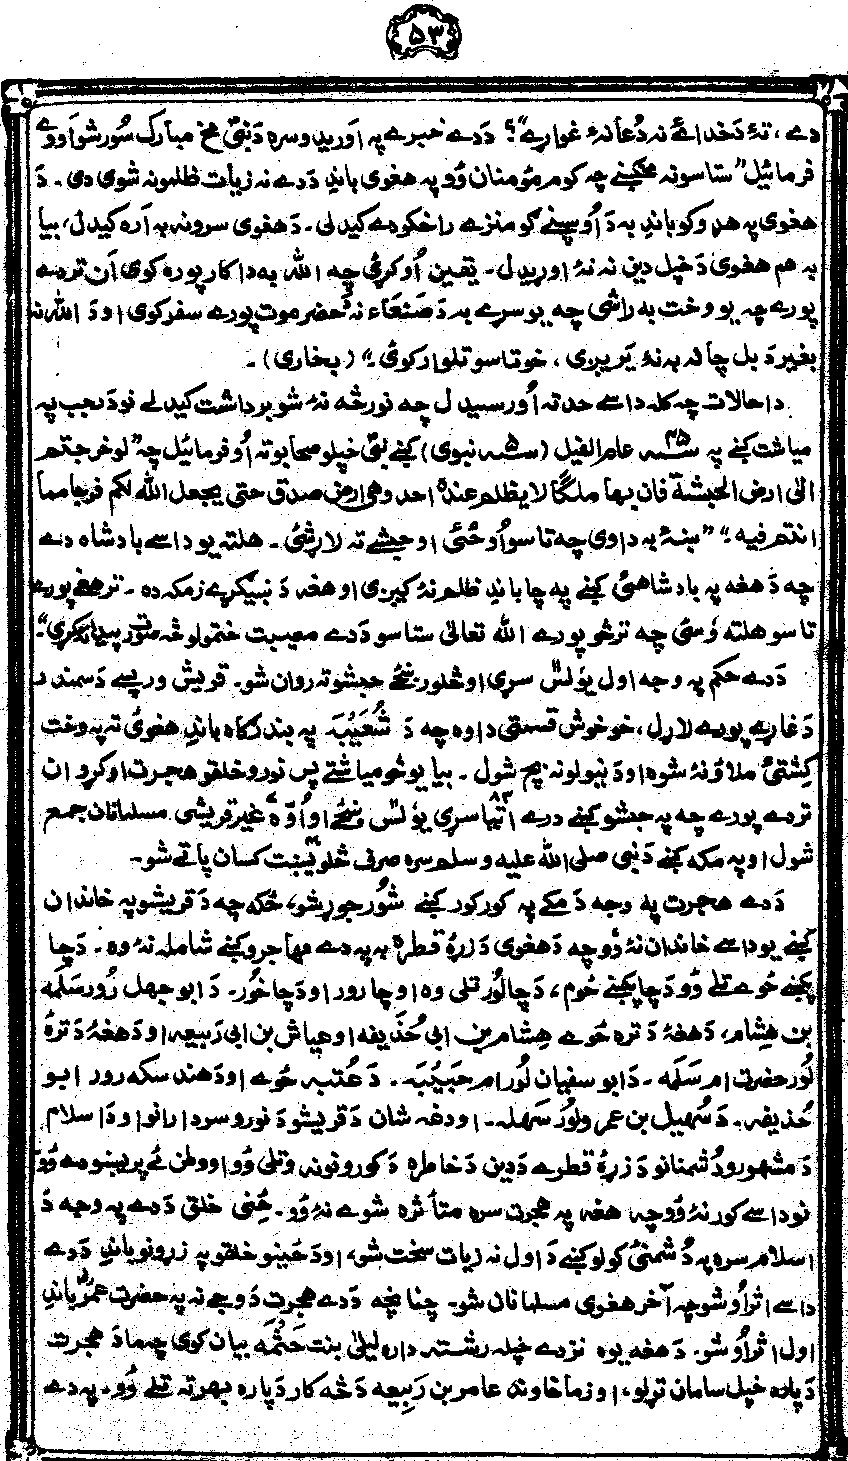 ۵۳
دے، تۀ دَ خدائے نه دُعا نۀ غواړے"؟ دَدے خبرے په اوريدو سره دَ نبیؐ مخ مبارک سُور شو او وے
فرمائيل "ستاسو نه مخکښے چه کوم مؤمنان وُو په هغوی باندِ دَدے نه زيات ظلمونه شوی دی ۔ دَ
هغوی په هډوکو باندِ به دَ اُوسپنے ګومنزے راخکودے کيدلی ۔ دَ هغوی سرونه به اره کيدل، بيا
به هم هغوی دَ خپل دين نه نۀ اوړيدل ۔ يقين اُوکړئ چه الله به دا کار پوره کوی اَن تردے
پورے چه يو وخت به راشی چه يو سړے به دَ صنعاء نه حضر موت پورے سفر کوی او دَ الله نه
بغير دَ بل چا نه به نۀ يريږی، خو تاسو تلوار کوئ" (بخاری) ۔
دا حالات چه کله داسے حد ته اُورسيدل چه نور څه نۀ شو برداشت کيدلے نو دَ رجب په
مياشت کښے په ۴۵ سنه عام الفيل (۵ سنه نبوی) کښے نبیؐ خپلو صحابو ته اُوفرمائيل چه "لو خرجتم
الیٰ ارض الحبشة فان بها ملکًا لا يظلم عندهٗ احد وهی ارض صدق حتی يجعل الله لکم فرجا مما
انتم فيه"۔ "ښۀ به دا وی چه تاسو اُوځئی او حبشے ته لاړشئ ۔ هلته يو داسے بادشاه دے
چه دَ هغه په بادشاهئ کښے په چا باندِ ظلم نۀ کيږی او هغه دَ نيکړے زمکه ده ۔ ترهغے پورے
تاسو هلته وسئ چه ترڅو پورے الله تعالیٰ ستاسو دَدے مصيبت ختمولو څه صورت پيدا نۀ کړی"۔
دَدے حکم په وجه اول يؤلس سړی او څلور ښځے حبشو ته روان شو۔ قريش ورپسے دَ سمندر
دَ غاړے پورے لاړل، خو خوش قسمتی دا وه چه دَ شُعَيبَه په بندرګاه باندِ هغوی ته په وخت
کِشتئ ملاؤ شوه او دَ نيولو نه بچ شول ۔ بيا يو څو مياشتے پس نورو خلقو هجرت اوکړو ان
تردے پورے چه په حبشو کښے درے اتيا ۸۳ سړی يؤلس ښځے او اُوۀ ۷ غير قريشی مسلمانان جمع
شول او په مکه کښے دَ نبی صلی الله عليه وسلم سره صرف څلويښت ۴۰ کسان پاتے شو۔
دَدے هجرت په وجه دَ مکے په کور کور کښے شور جوړ شو، ځکه چه دَ قريشو په خاندان
کښے يو داسے خاندان نۀ وُو چه دَ هغوی دَ زړۀ قطره به په دے مهاجرو کښے شامله نۀ وه ۔ دَ چا
پکښے ځوے تلے وُو دَ چا پکښے ځوم، دَ چا لُور تلی وه او چا رور او دَ چا خُور۔ دَ ابوجهل رُور سَلَمه
بن هِشام، دَ هغۀ دَ تره ځوے هِشام بن ابی حُذَيفه او عياش بن ابی رَبيعه او دَ هغۀ دَ ترۀ
لُور حضرت ام سَلَمه ۔ دَ ابو سفيان لُور ام حَبيبَه ۔ دَ عُتبه ځوے او دَ هند سکه رور ابو
حُذيفه ۔ دَ سُهيل بن عمر و لُور سَهله ۔ او دغه شان دَ قريشو دَ نورو سردارانو او دَ اسلام
دَ مشهورو دُشمنانو دَ زړۀ قطرے دَ دين دَ خاطره دَ کورونونه وتلی وُو او وطن ئے پريښودے وُو۔
نو داسے کور نۀ وُو چه هغه په هجرت سره متأثره شوے نۀ وُو۔ ځنی خلق دَدے په وجه دَ
اسلام سره په دُشمنئ کولو کښے دَ اول نه زيات سخت شو، او دَ ځينو خلقو په زړونو باندِ دَدے
داسے اثر اُوشو چه آخر هغوی مسلمانان شو۔ چنانچه دَدے هجرت دَ وجے نه په حضرت عمرؓ باندِ
اول اثر اُوشو۔ دَ هغه يوه نزدے خپله رشته داره ليلیٰ بنت حَثمَه بيان کوی چه ما دَ هجرت
دَ پاره خپل سامان ترلو، او زما خاوند عامر بن رَبيعه دَ څه کار دَ پاره بهر ته تلے وُو۔ په دے